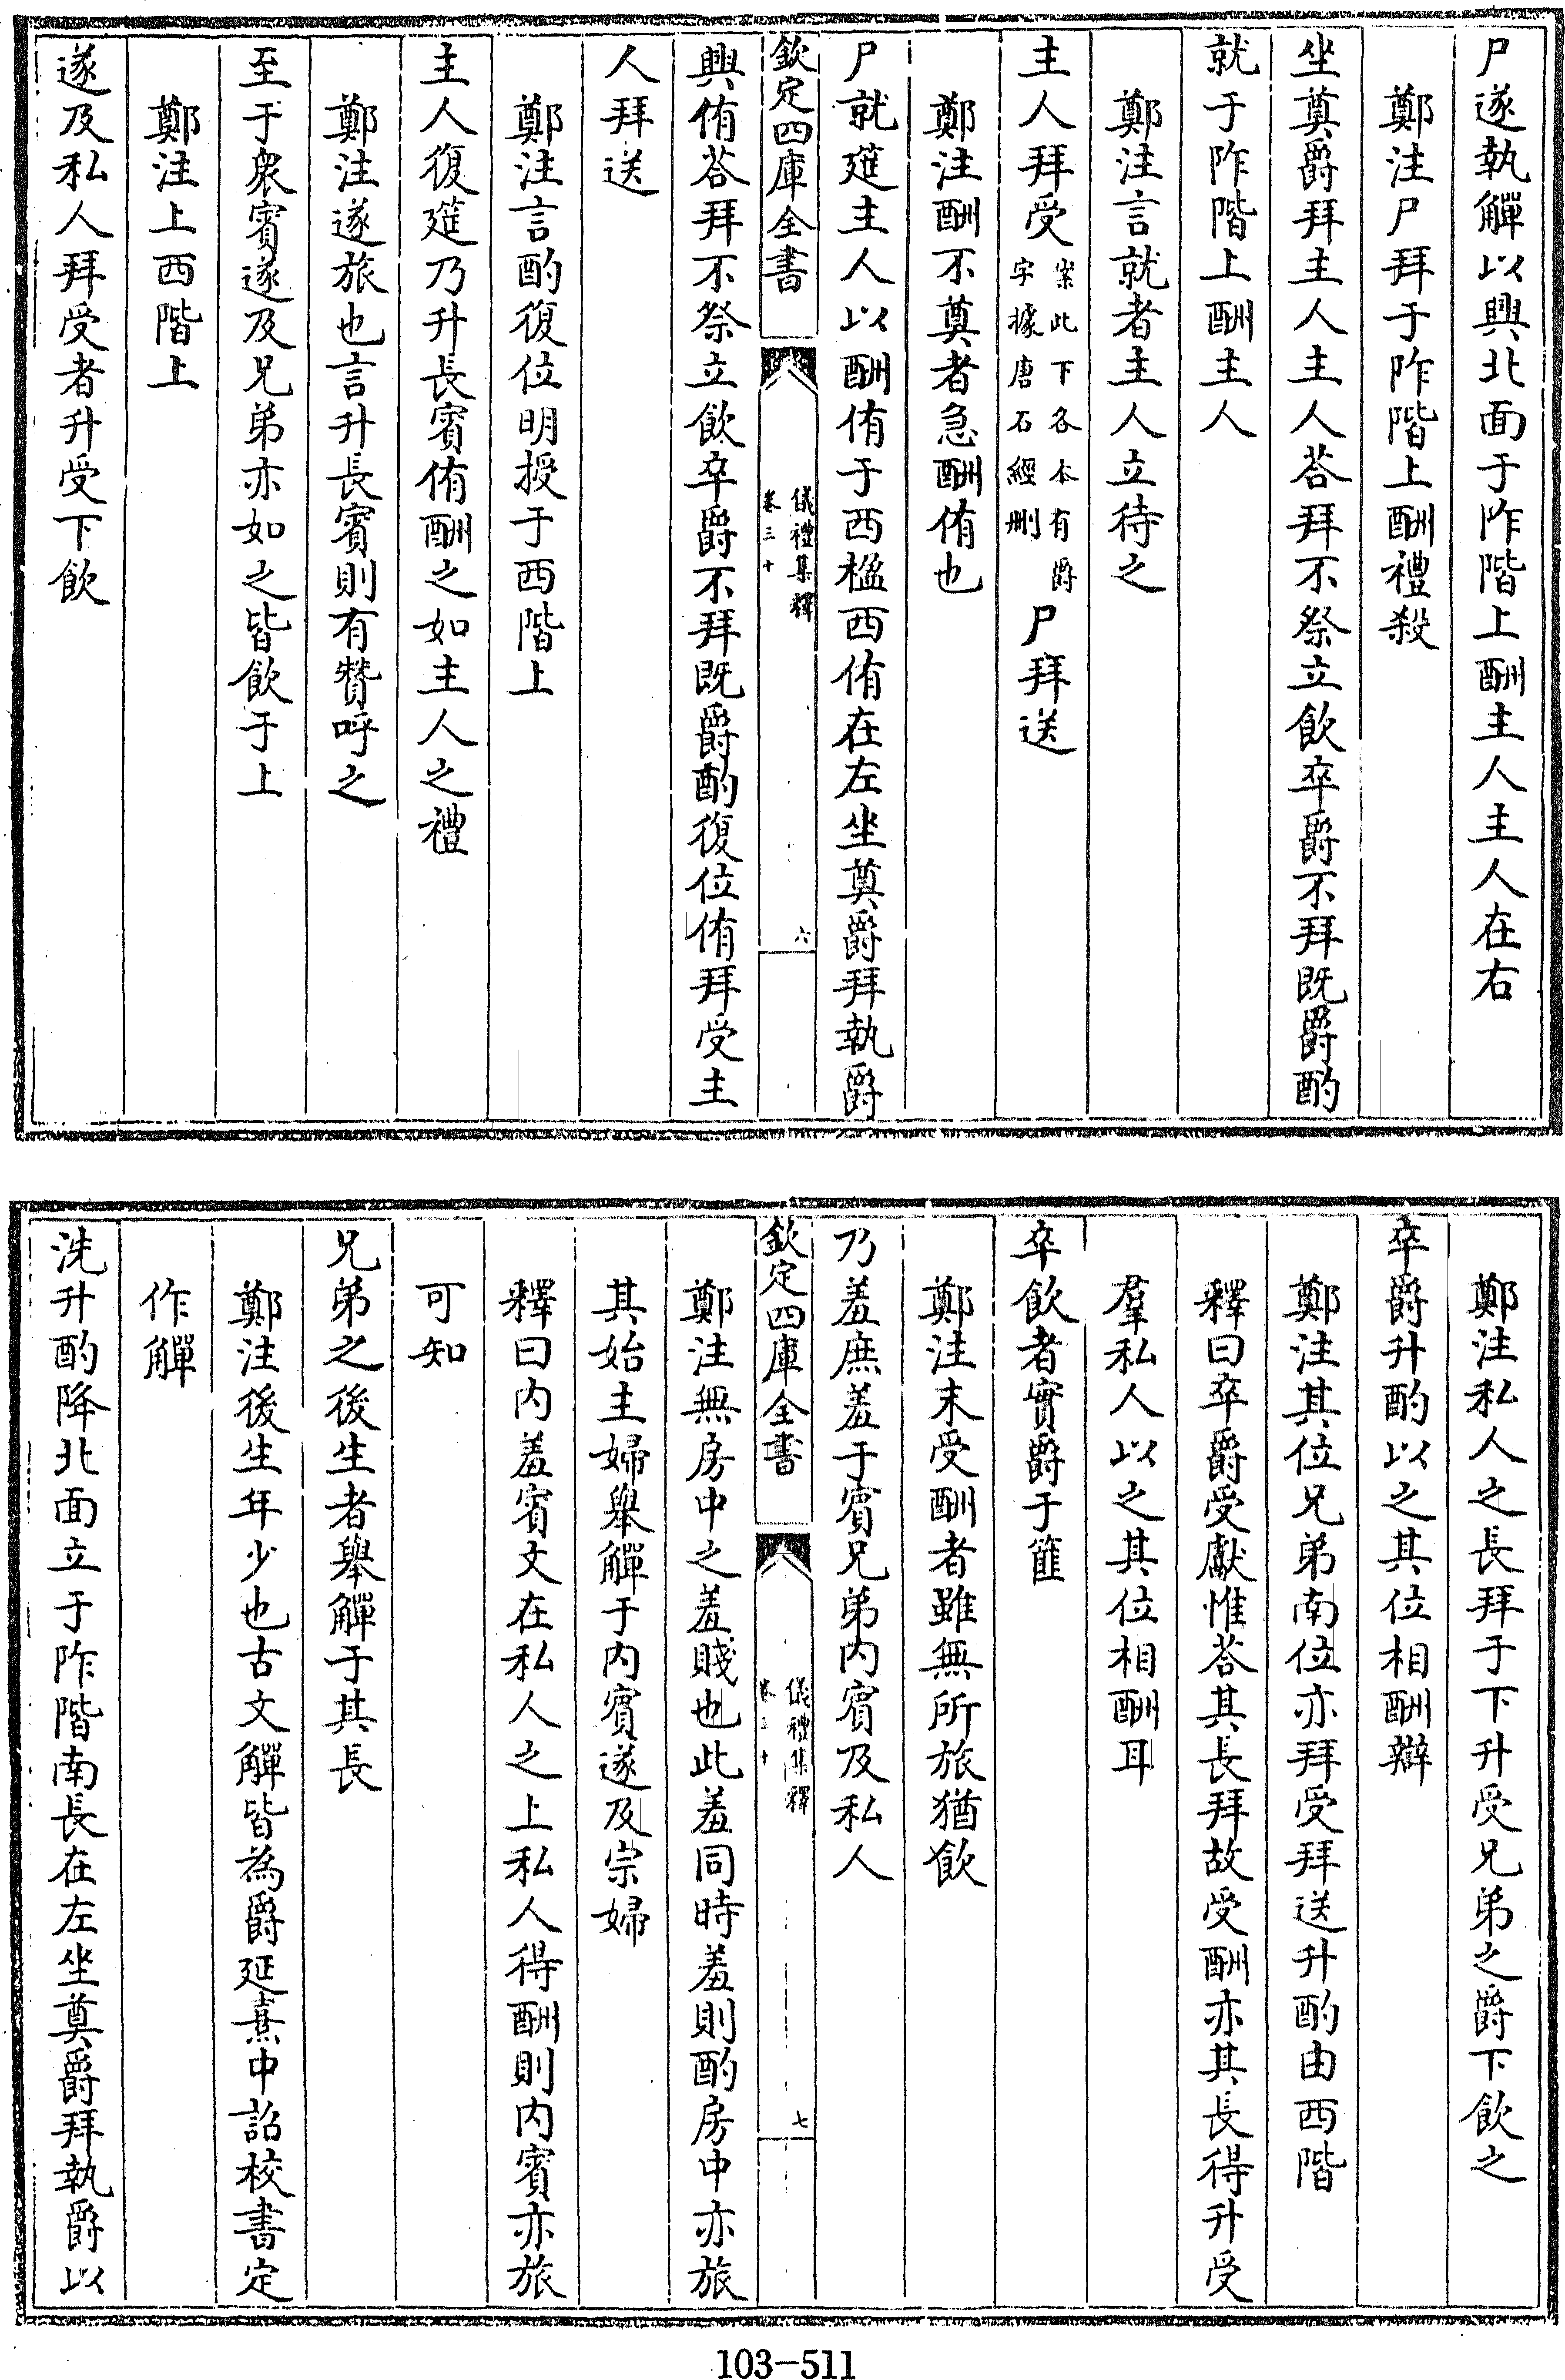 尸遂執觶以興北面于阼階上酬主人主人在右
鄭注尸拜于阼階上酬禮殺
坐奠爵拜主人主人荅拜不祭立飲卒爵不拜既爵酌
就于阼階上酬主人
鄭注言就者主人立待之
主人拜受案此下各本有爵字據唐石經刪尸拜送
鄭注酬不奠者急酬侑也
尸就筵主人以酬侑于西楹西侑在左坐奠爵拜執爵
欽定四庫全書
儀禮集釋
卷三十
六
興侑荅拜不祭立飲卒爵不拜既爵酌復位侑拜受主
人拜送
鄭注言酌復位明授于西階上
主人復筵乃升長賓侑酬之如主人之禮
鄭注遂旅也言升長賓則有贊呼之
至于衆賓遂及兄弟亦如之皆飲于上
鄭注上西階上
遂及私人拜受者升受下飲
鄭注私人之長拜于下升受兄弟之爵下飲之
卒爵升酌以之其位相酬辯
鄭注其位兄弟南位亦拜受拜送升酌由西階
釋曰卒爵受獻惟荅其長拜故受酬亦其長得升受
羣私人以之其位相酬耳
卒飲者實爵于篚
鄭注末受酬者雖無所旅猶飲
乃羞庶羞于賓兄弟内賓及私人
欽定四庫全書
儀禮集釋
卷三十
七
鄭注無房中之羞賤也此羞同時羞則酌房中亦旅
其始主婦舉觶于内賓遂及宗婦
釋曰内羞賓文在私人之上私人得酬則内賓亦旅
可知
兄弟之後生者舉觶于其長
鄭注後生年少也古文觶皆為爵延熹中詔校書定
作觶
洗升酌降北面立于阼階南長在左坐奠爵拜執爵以
103-511